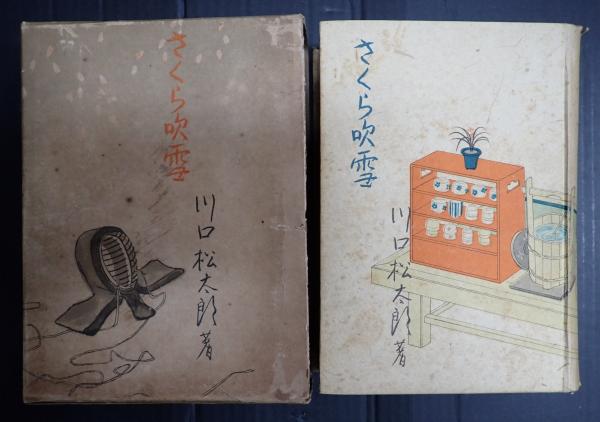 さくら吹雪
川口松太郎著
さくら吹雪
川口松太郎著